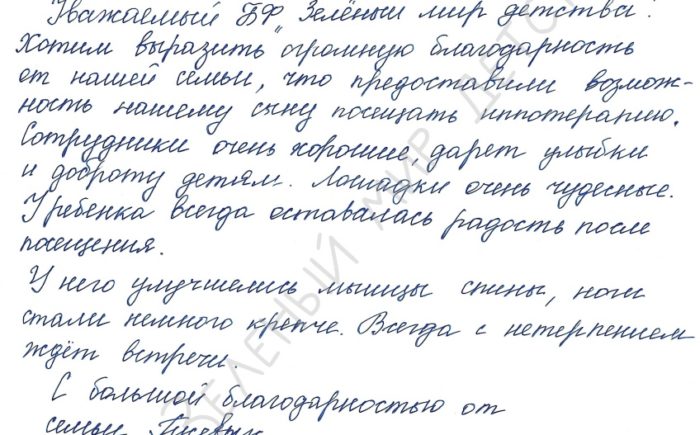 Уважаемый БФ "Зелёный мир детства".
Хотим выразить огромную благодарность
от нашей семьи, что предоставили возмож-
ность нашему сыну посещать иппотерапию.
Сотрудники очень хорошие, дарет улыбки
и доброту детям. Лошадки очень чудесные.
У ребенка всегда оставалась радость после
посещения.
У него улучшелись мышцы спины, ноги
стали немного крепче. Всегда с нетерпением
ждёт встречи.
С большой благодарностью от
семьи
ЗЕЛЕНЫЙ МИР ДЕТС